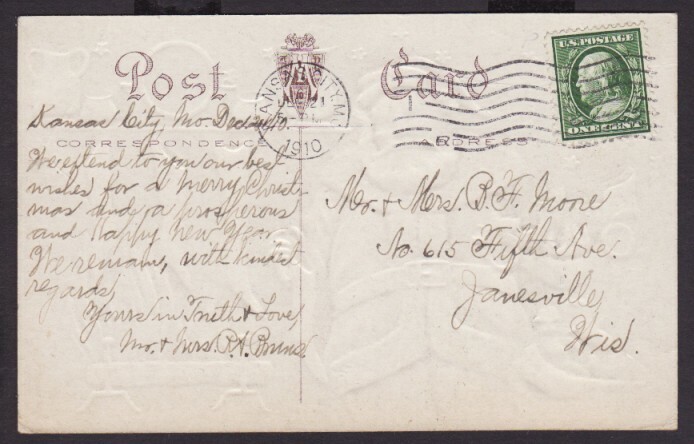 Post Card
U.S. POSTAGE
ONE CENT
KANSAS CITY, MO.
1910
CORRESPONDENCE
ADDRESS
Kansas City, Mo. Dec.
We extend to you our best
wishes for a Merry Christ-
mas and a prosperous
and happy New Year.
We remain, with kindest
regards,
Yours in Truth & Love,
Mr. & Mrs. R.A. Bruns.
Mr. & Mrs. B.F. Moore
No. 615 Fifth Ave.
Janesville,
Wis.